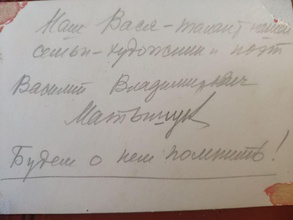 Наш Вася - талант нашей
семьи - художник и поэт
Василий Владимирович
Матышук
Будем о нем помнить!